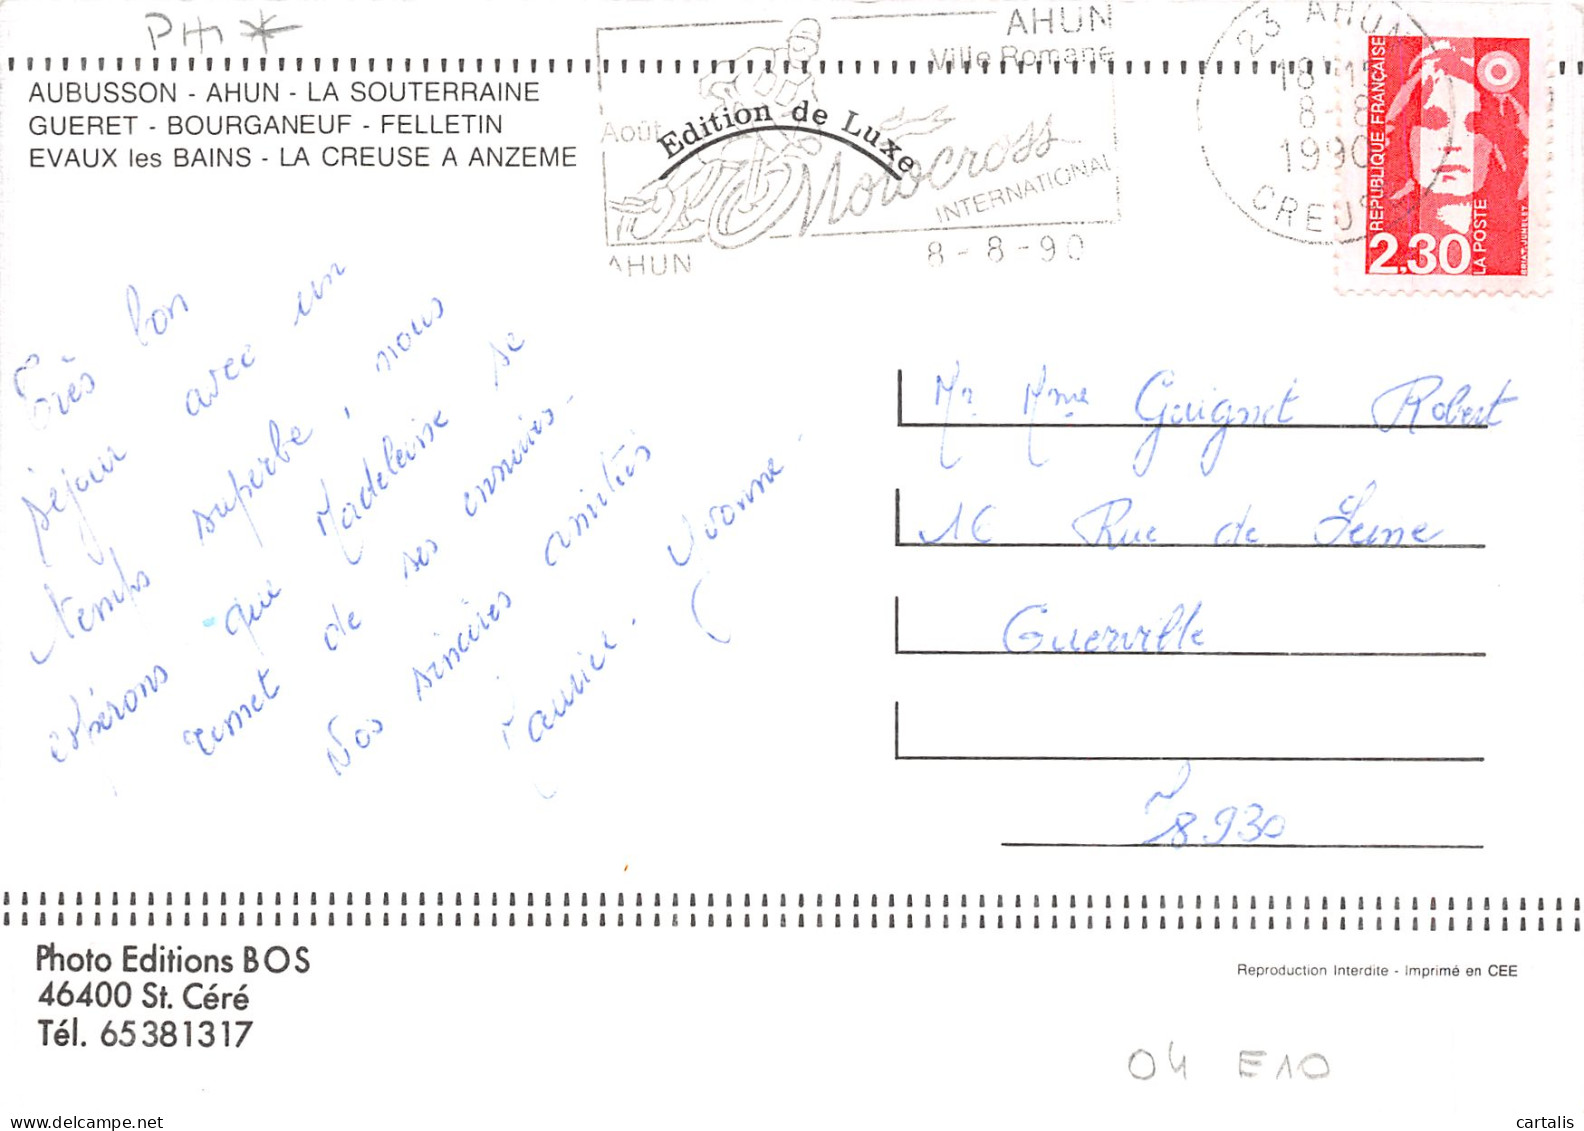 PH *
AUBUSSON - AHUN - LA SOUTERRAINE
GUERET - BOURGANEUF - FELLETIN
EVAUX les BAINS - LA CREUSE A ANZEME
AHUN
Ville Romane
Août
Edition de Luxe
Motocross
INTERNATIONAL
AHUN
8-8-90
23 AHUN
18H15
8-8
1990
CREUSE
REPUBLIQUE FRANÇAISE
2,30
LA POSTE
BRIAT-JUMELET
Très bon
séjour avec un
temps superbe, nous
espérons que Madeleine se
remet de ses ennuis.
Nos sincères amitiés
Maurice. Yvonne
Mr Mme Guignet Robert
16 Rue de Seine
Guerville
78930
Photo Editions BOS
46400 St. Céré
Tél. 65381317
Reproduction Interdite - Imprimé en CEE
04 E10
delcampe.net
cartalis